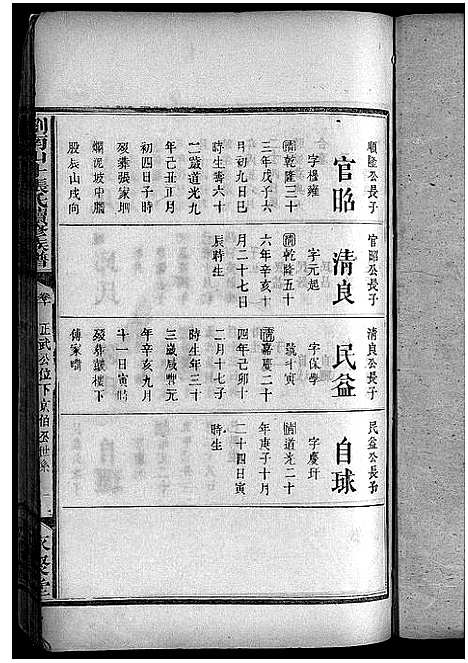 順隆公長子
官昭
字樓雍
清乾隆三十
三年戊子六
月初九日巳
時生壽六十
二歲道光九
年己丑正月
初四日子時
歿葬張家塅
爛泥坡中腦
股辰山戌向
官昭公長子
清良
字元起
清乾隆五十
六年辛亥十
月二十七日
辰時生
清良公長子
民益
字保學
號斗寅
清嘉慶二十
四年己卯十
二月十七子
時生年三十
三歲咸豐元
年辛亥九月
廿一日寅時
歿葬鼓樓下
傅家嘴
民益公長子
自球
字慶玕
清道光二十
年庚子十月
二十四日寅
時生
張氏續修族譜
正武公位下京伯丞世系